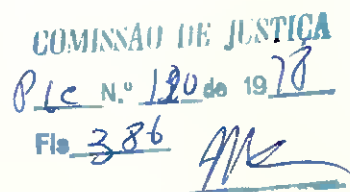 COMISSÃO DE JUSTIÇA
PLC N.º 190 de 1978
Fls 386